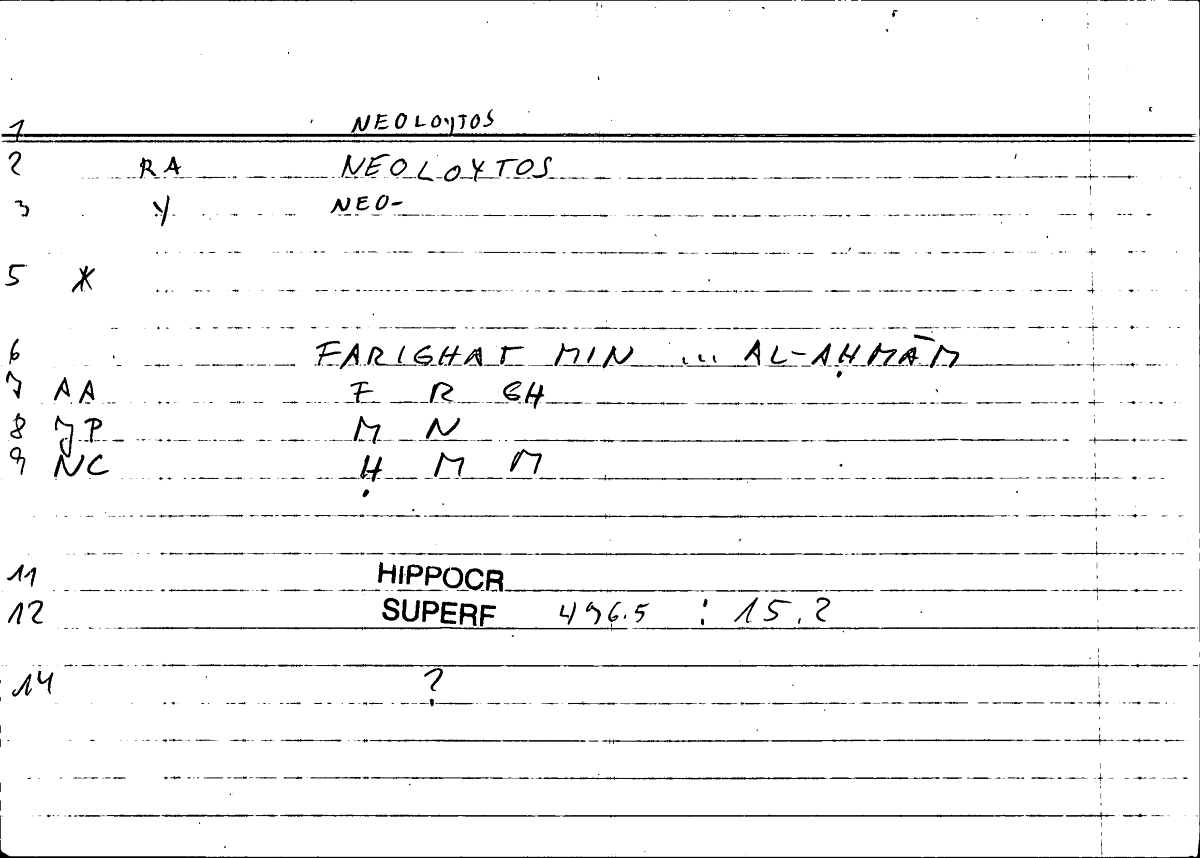 1 NEOLOYTOS
2 RA NEOLOYTOS
3 Y NEO-
5 Ж
6 FARIGHAT MIN ... AL-AḤMĀM
7 AA F R GH
8 JP M N
9 NC Ḥ M M
11 HIPPOCR
12 SUPERF 496.5 : 15.2
14 ?